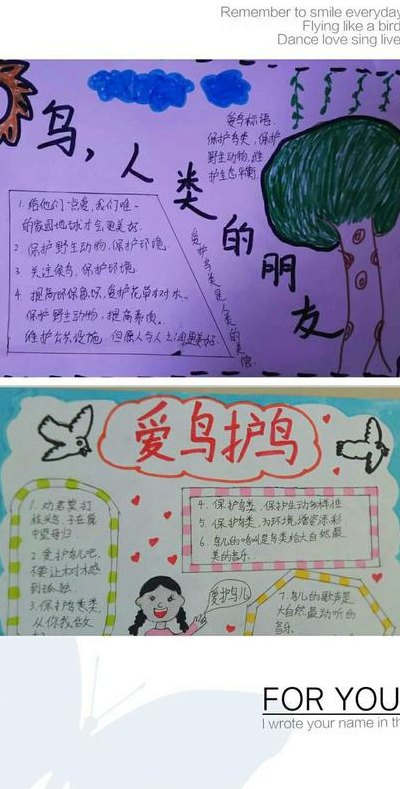 Remember to smile everyday
Flying like a bird
Dance love sing live
鸟,人类的朋友
爱鸟标语
保护鸟类,保护
野生动物,维
护生态平衡.
1.给他们一点爱,我们唯一
的家园地球才会更美好.
2.保护野生动物,保护环境.
3.关注候鸟,保护环境.
4.提高环保意识,爱护花草树木.
保护野生动物,提高素质.
维护公共设施,但愿人与人之间更美好
爱护鸟类是人类的美德.
爱鸟护鸟
1.劝君莫打
枝头鸟,子在巢
中望母归
2.爱护鸟儿吧,
不要让树木感
到孤独.
3.保护鸟类,
从你我做
起
4.保护鸟类,保护生动多样性.
5.保护鸟类,为环境增姿添彩
6.鸟儿的鸣叫是鸟类给大自然最
美的音乐.
爱护鸟儿
7.鸟儿的歌声是
大自然最动听的
音乐.
FOR YOU
I wrote your name in th